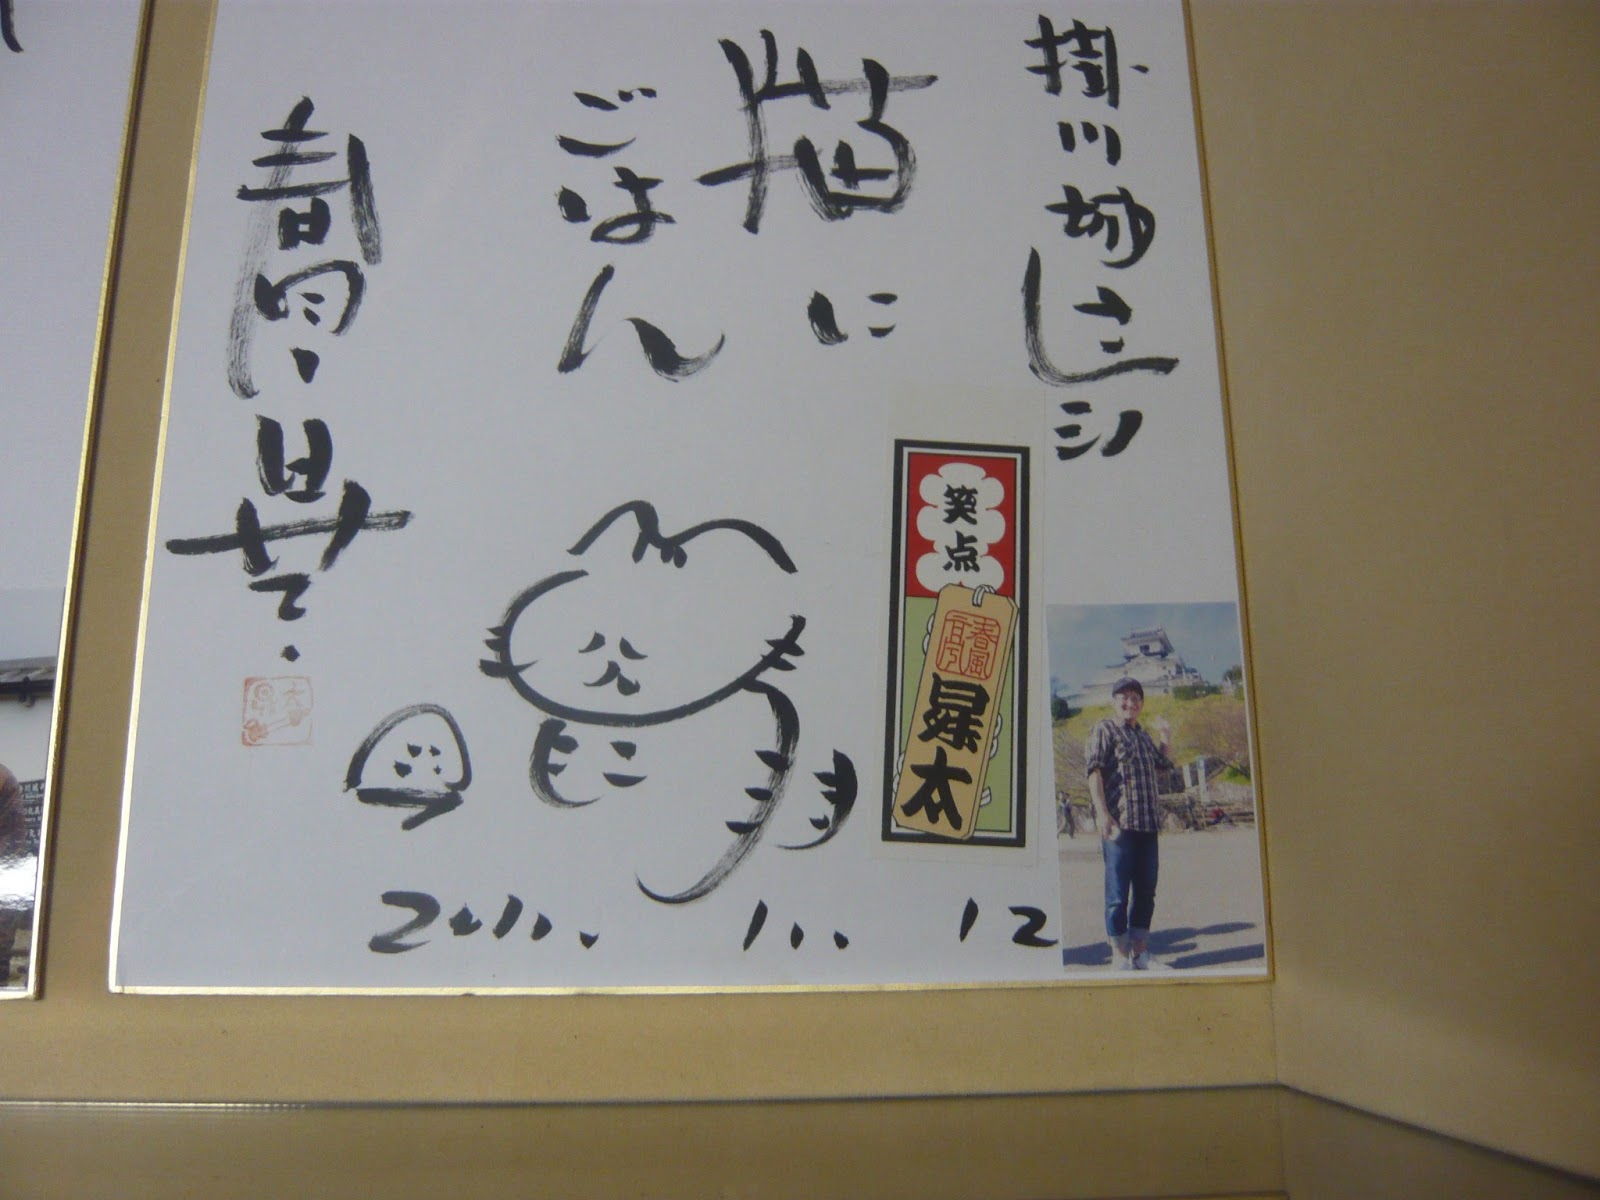 掛川城
猫に
ごはん
春風亭
昇太
笑点
春風亭
昇太
2011. 11. 12